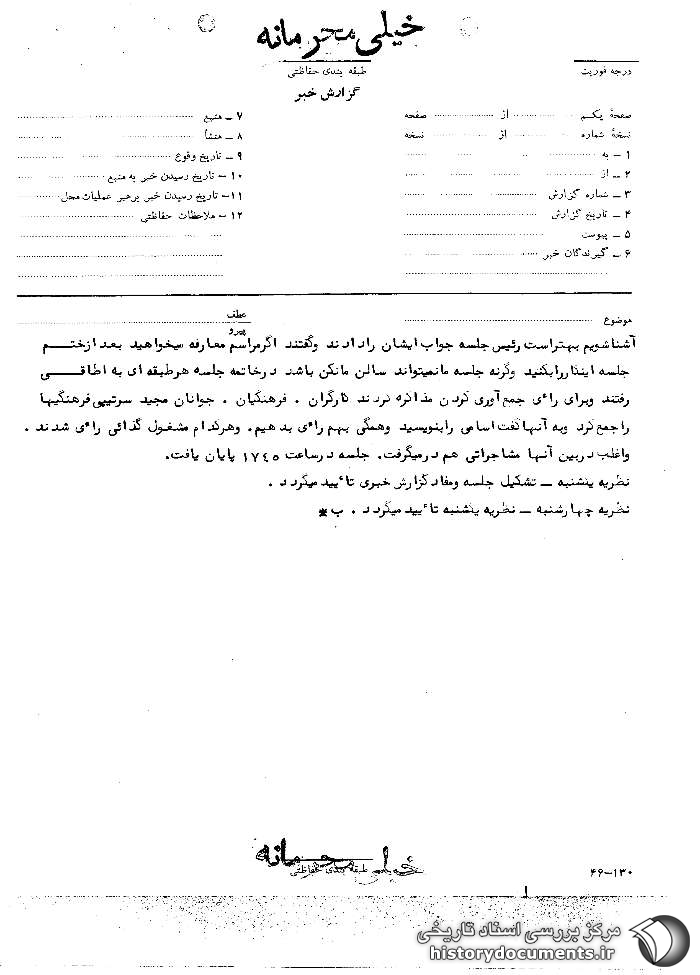 خیلی محرمانه
طبقه بندی حفاظتی
درجه فوریت
گزارش خبر
صفحهٔ یکم از صفحه
نسخهٔ شماره از نسخه
۱ – به
۲ – از
۳ – شماره گزارش
۴ – تاریخ گزارش
۵ – پیوست
۶ – گیرندگان خبر
۷ – منبع
۸ – منشأ
۹ – تاریخ وقوع
۱۰ – تاریخ رسیدن خبر به منبع
۱۱ – تاریخ رسیدن خبر برهبر عملیات محل
۱۲ – ملاحظات حفاظتی
موضوع
عطف
پیرو
آشناشویم بهتراست رئیس جلسه جواب ایشان رادادند وگفتند اگرمراسم معارفه میخواهید بعد ازختم
جلسه اینکاررابکنید وگرنه جلسه مانمیتواند سالن مانکن باشد درخاتمه جلسه هرطبقه ای به اطاقی
رفتند وبرای رای جمع آوری کردن مذاکره کردند کارگران . فرهنگیان . جوانان مجید سرتیپی فرهنگیها
راجمع کرد وبه آنهاگفت اسامی رابنویسید وهمگی بهم رای بدهیم. وهرکدام مشغول گدائی رای شدند .
واغلب دربین آنها مشاجراتی هم درمیگرفت. جلسه درساعت ۱۷۴۵ پایان یافت.
نظریه یکشنبه – تشکیل جلسه ومفاد گزارش خبری تائید میگردد .
نظریه چهارشنبه – نظریه یکشنبه تائید میگردد . ب*
خیلی محرمانه
طبقه بندی حفاظتی
۴۶–۱۳۰
مرکز بررسی اسناد تاریخی
historydocuments.ir